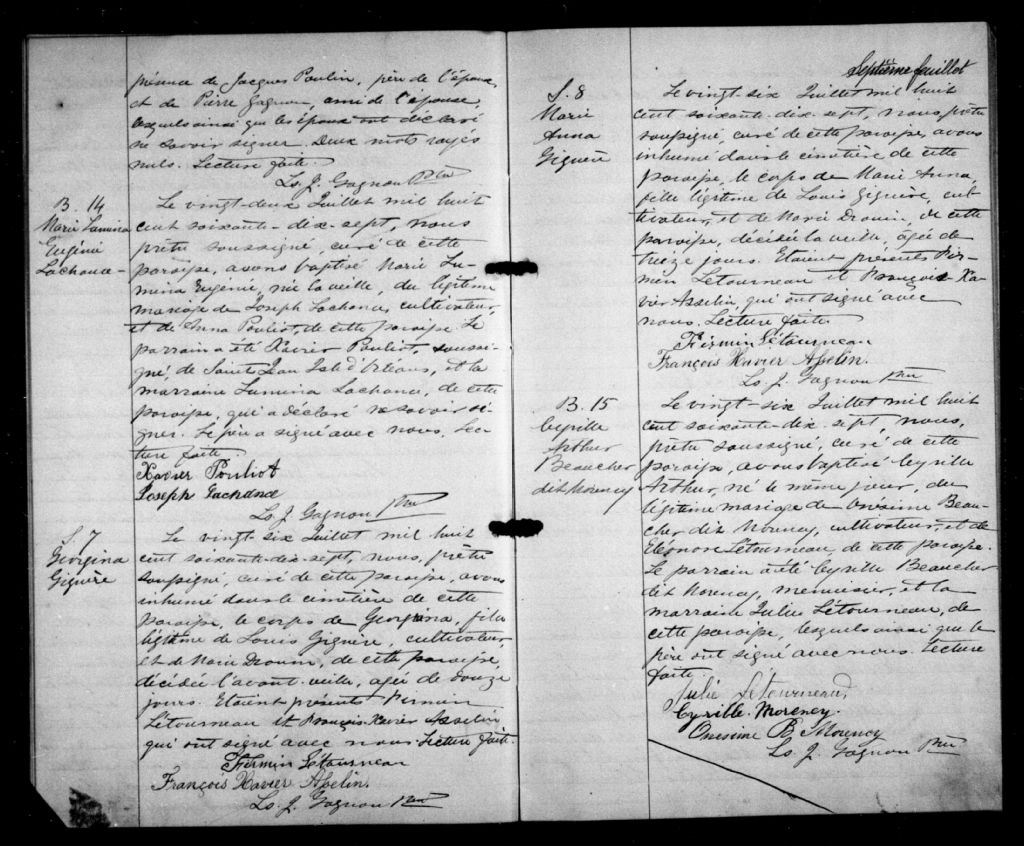 présence de Jacques Poulin, père de l'époux,
et de Pierre Gagnon, ami de l'épouse,
lesquels ainsi que les époux ont déclaré
ne savoir signer. Deux mots rayés
nuls. Lecture faite.
Ls. J. Gagnon Ptre
B. 14
Marie Lumina
Eugénie
Lachance
Le vingt-deux Juillet mil huit
cent soixante-dix-sept, nous
prêtre soussigné, curé de cette
paroisse, avons baptisé Marie Lu-
mina Eugénie, née la veille, du légitime
mariage de Joseph Lachance, cultivateur,
et de Anna Pouliot, de cette paroisse. Le
parrain a été Xavier Pouliot, soussi-
gné, de Saint Jean Isle d'Orléans, et la
marraine Lumina Lachance, de cette
paroisse, qui a déclaré ne savoir si-
gner. Le père a signé avec nous. Lec-
ture faite.
Xavier Pouliot
Joseph Lachance
Ls. J. Gagnon Ptre
S. 7
Georgina
Giguère
Le vingt-six Juillet mil huit
cent soixante-dix-sept, nous, prêtre
soussigné, curé de cette paroisse, avons
inhumé dans le cimetière de cette
paroisse, le corps de Georgina, fille
légitime de Louis Giguère, cultivateur,
et de Marie Drouin, de cette paroisse,
décédée l'avant-veille, agée de douze
jours. Etaient présents Firmin
Létourneau et François-Xavier Asselin
qui ont signé avec nous. Lecture faite.
Firmin Létourneau
François Xavier Asselin.
Ls. J. Gagnon Ptre
Septième feuillet
S. 8
Marie
Anna
Giguère
Le vingt-six Juillet mil huit
cent soixante-dix-sept, nous prêtre
soussigné, curé de cette paroisse, avons
inhumé dans le cimetière de cette
paroisse, le corps de Marie Anna,
fille légitime de Louis Giguère, cul-
tivateur, et de Marie Drouin, de cette
paroisse, décédée la veille, agée de
treize jours. Etaient présents Fir-
min Létourneau et François-Xa-
vier Asselin, qui ont signé avec
nous. Lecture faite.
Firmin Létourneau
François Xavier Asselin.
Ls. J. Gagnon Ptre
B. 15
Cyrille
Arthur
Beaucher
dit Morency
Le vingt-six Juillet mil huit
cent soixante-dix-sept, nous,
prêtre soussigné, curé de cette
paroisse, avons baptisé Cyrille
Arthur, né le même jour, du
légitime mariage de Onésime Beau-
cher dit Morency, cultivateur, et de
Eléonore Létourneau, de cette paroisse.
Le parrain a été Cyrille Beaucher
dit Morency, menuisier, et la
marraine Julie Létourneau, de
cette paroisse, lesquels ainsi que le
père ont signé avec nous. Lecture
faite.
Julie Létourneau,
Cyrille. Morency.
Onesime B. Morency
Ls. J. Gagnon Ptre